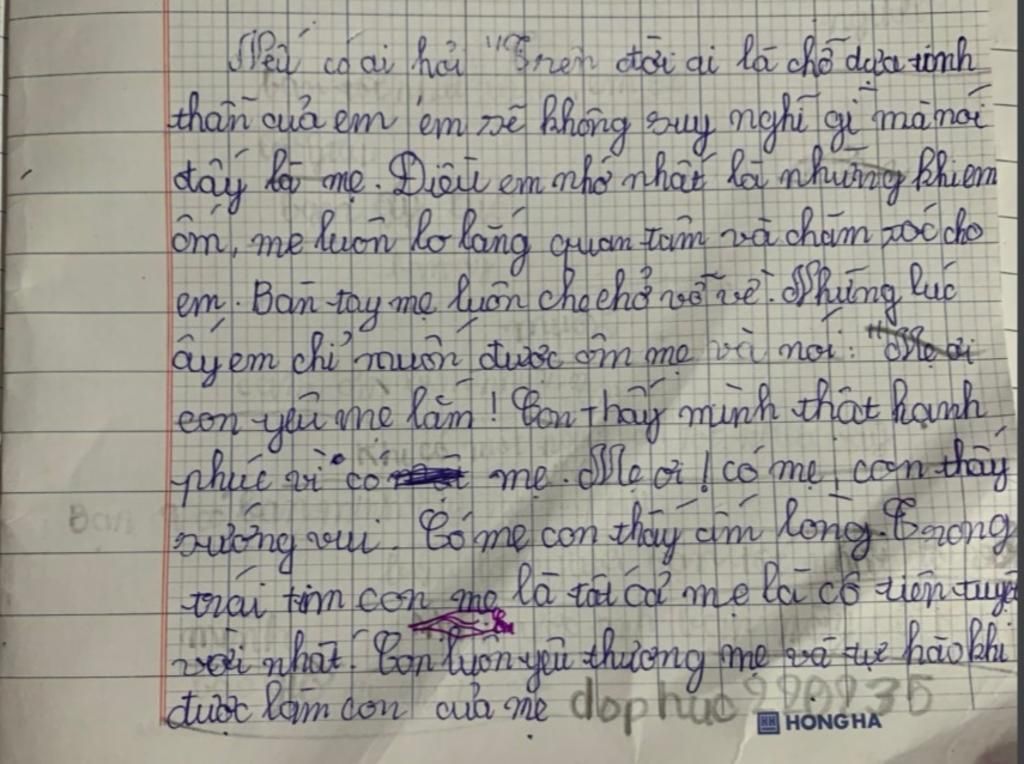 Nếu có ai hỏi "Trên đời ai là chỗ dựa tinh
thần của em em sẽ không suy nghĩ gì mà nói
đấy là mẹ. Điều em nhớ nhất là những khi em
ốm, mẹ luôn lo lắng quan tâm và chăm sóc cho
em. Bàn tay mẹ luôn che chở vỗ về. Những lúc
ấy em chỉ muốn được ôm mẹ và nói: "Mẹ ơi
con yêu mẹ lắm! Con thấy mình thật hạnh
phúc vì có mẹ. Mẹ ơi! có mẹ, con thấy
sướng vui. Có mẹ con thấy ấm lòng. Trong
trái tim con mẹ là tất cả mẹ là cô tiên tuyệt
vời nhất. Con luôn yêu thương mẹ và tự hào khi
được làm con của mẹ
HONG HA